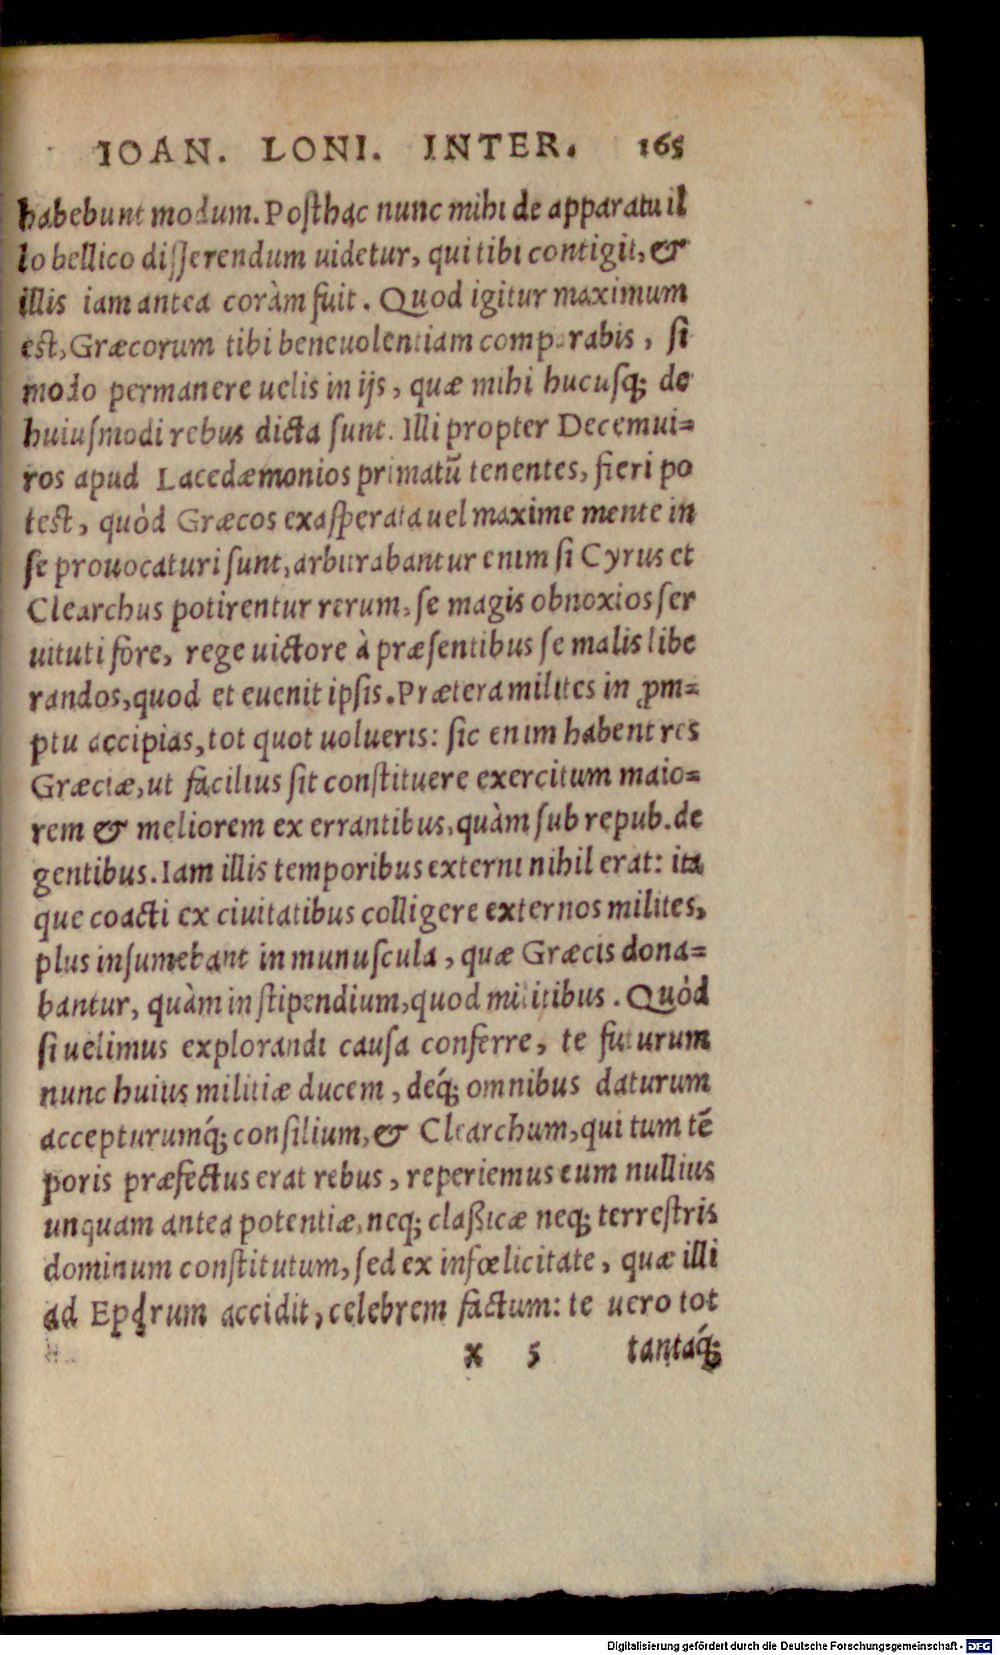 IOAN. LONI. INTER. 165
habebunt modum. Posthac nunc mihi de apparatu il
lo bellico disserendum uidetur, qui tibi contigit, &
illis iam antea coràm fuit. Quod igitur maximum
est, Græcorum tibi beneuolentiam comparabis, si
modo permanere uelis in ijs, quæ mihi hucusq; de
huiusmodi rebus dicta sunt. Illi propter Decemui=
ros apud Lacedæmonios primatũ tenentes, fieri po
test, quòd Græcos exasperata uel maxime mente in
se prouocaturi sunt, arbitrabantur enim si Cyrus et
Clearchus potirentur rerum, se magis obnoxios ser
uituti fore, rege uictore à præsentibus se malis libe
randos, quod et euenit ipsis. Prætera milites in ꝓm=
ptu accipias, tot quot uolueris: sic enim habent res
Græciæ, ut facilius sit constituere exercitum maio=
rem & meliorem ex errantibus, quàm sub repub. de
gentibus. Iam illis temporibus externi nihil erat: ita
que coacti ex ciuitatibus colligere externos milites,
plus insumebant in munuscula, quæ Græcis dona=
bantur, quàm in stipendium, quod militibus. Quòd
si uelimus explorandi causa conferre, te futurum
nunc huius militiæ ducem, deq́; omnibus daturum
accepturumq́; consilium, & Clearchum, qui tum tẽ
poris præfectus erat rebus, reperiemus eum nullius
unquam antea potentiæ, neq; claßicæ neq; terrestris
dominum constitutum, sed ex infœlicitate, quæ illi
ad Epdrum accidit, celebrem factum: te uero tot
x 5 tantaq́;
Digitalisierung gefördert durch die Deutsche Forschungsgemeinschaft - DFG